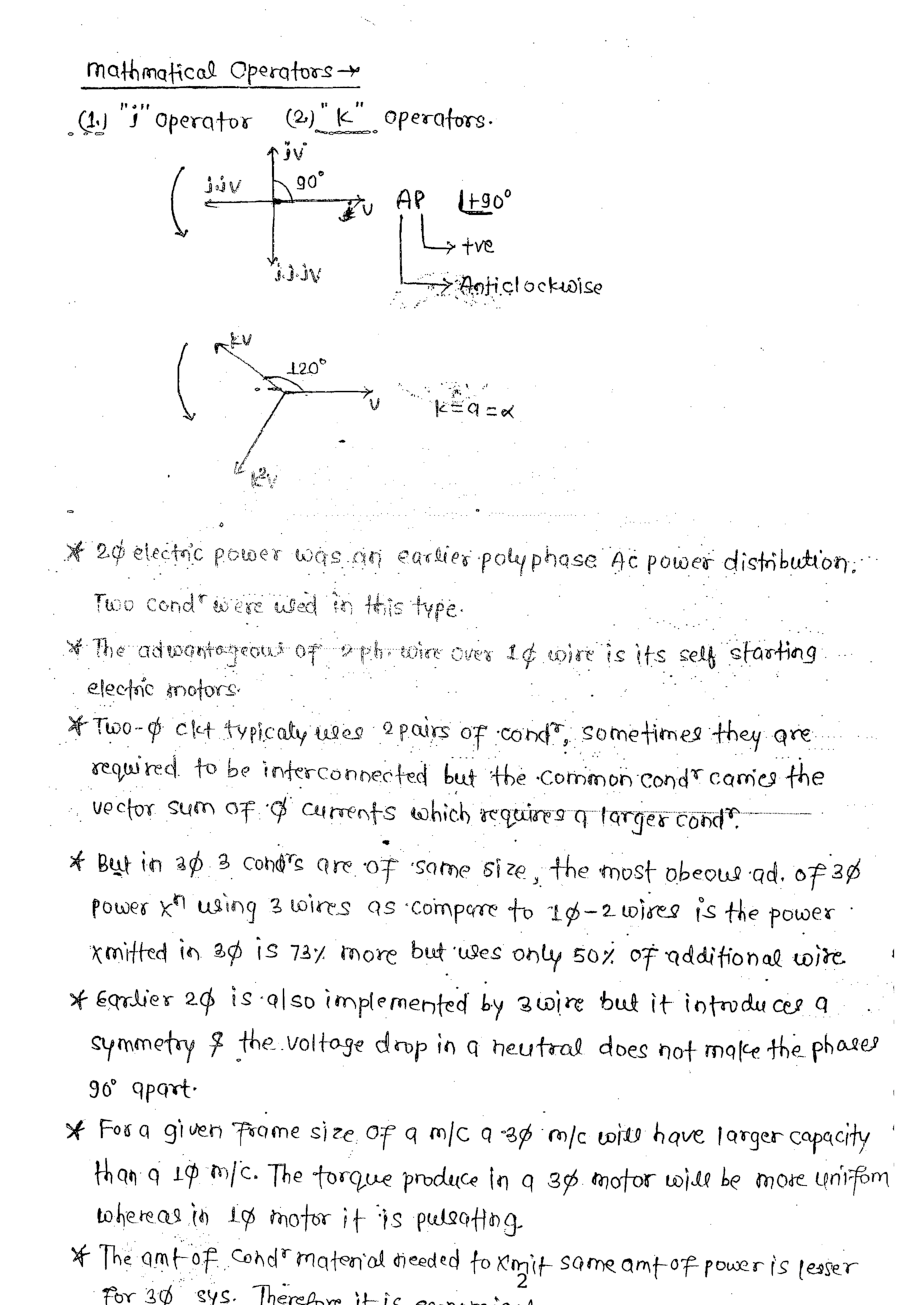 mathmatical Operators →
(1.) "j" operator (2) "k" operators.
jv
j.jv 90° v AP ∟+90°
→ +ve
j.j.jv
→ Anticlockwise
kv
120°
v k = a = α
k²v
* 2ϕ electric power was an earlier polyphase Ac power distribution.
Two condʳ were used in this type.
* The advantageous of 2 ph. wire over 1ϕ wire is its self starting
electric motors.
* Two-ϕ ckt typicaly uses 2 pairs of condʳ, sometimes they are
required to be interconnected but the common condʳ carries the
vector sum of ϕ currents which requires a larger condʳ.
* But in 3ϕ 3 condʳs are of same size, the most obeous ad. of 3ϕ
power xⁿ using 3 wires as compare to 1ϕ-2 wires is the power
xmitted in 3ϕ is 73% more but uses only 50% of additional wire
* Earlier 2ϕ is also implemented by 3 wire but it introduces a
symmetry & the voltage drop in a neutral does not make the phases
90° apart.
* For a given Frame size of a m/c a 3ϕ m/c will have larger capacity
than a 1ϕ m/c. The torque produce in a 3ϕ motor will be more unifom
whereas in 1ϕ motor it is pulsating.
* The amt of condʳ material needed to xmit same amt of power is lesser
2
For 3ϕ sys. Therefore it is